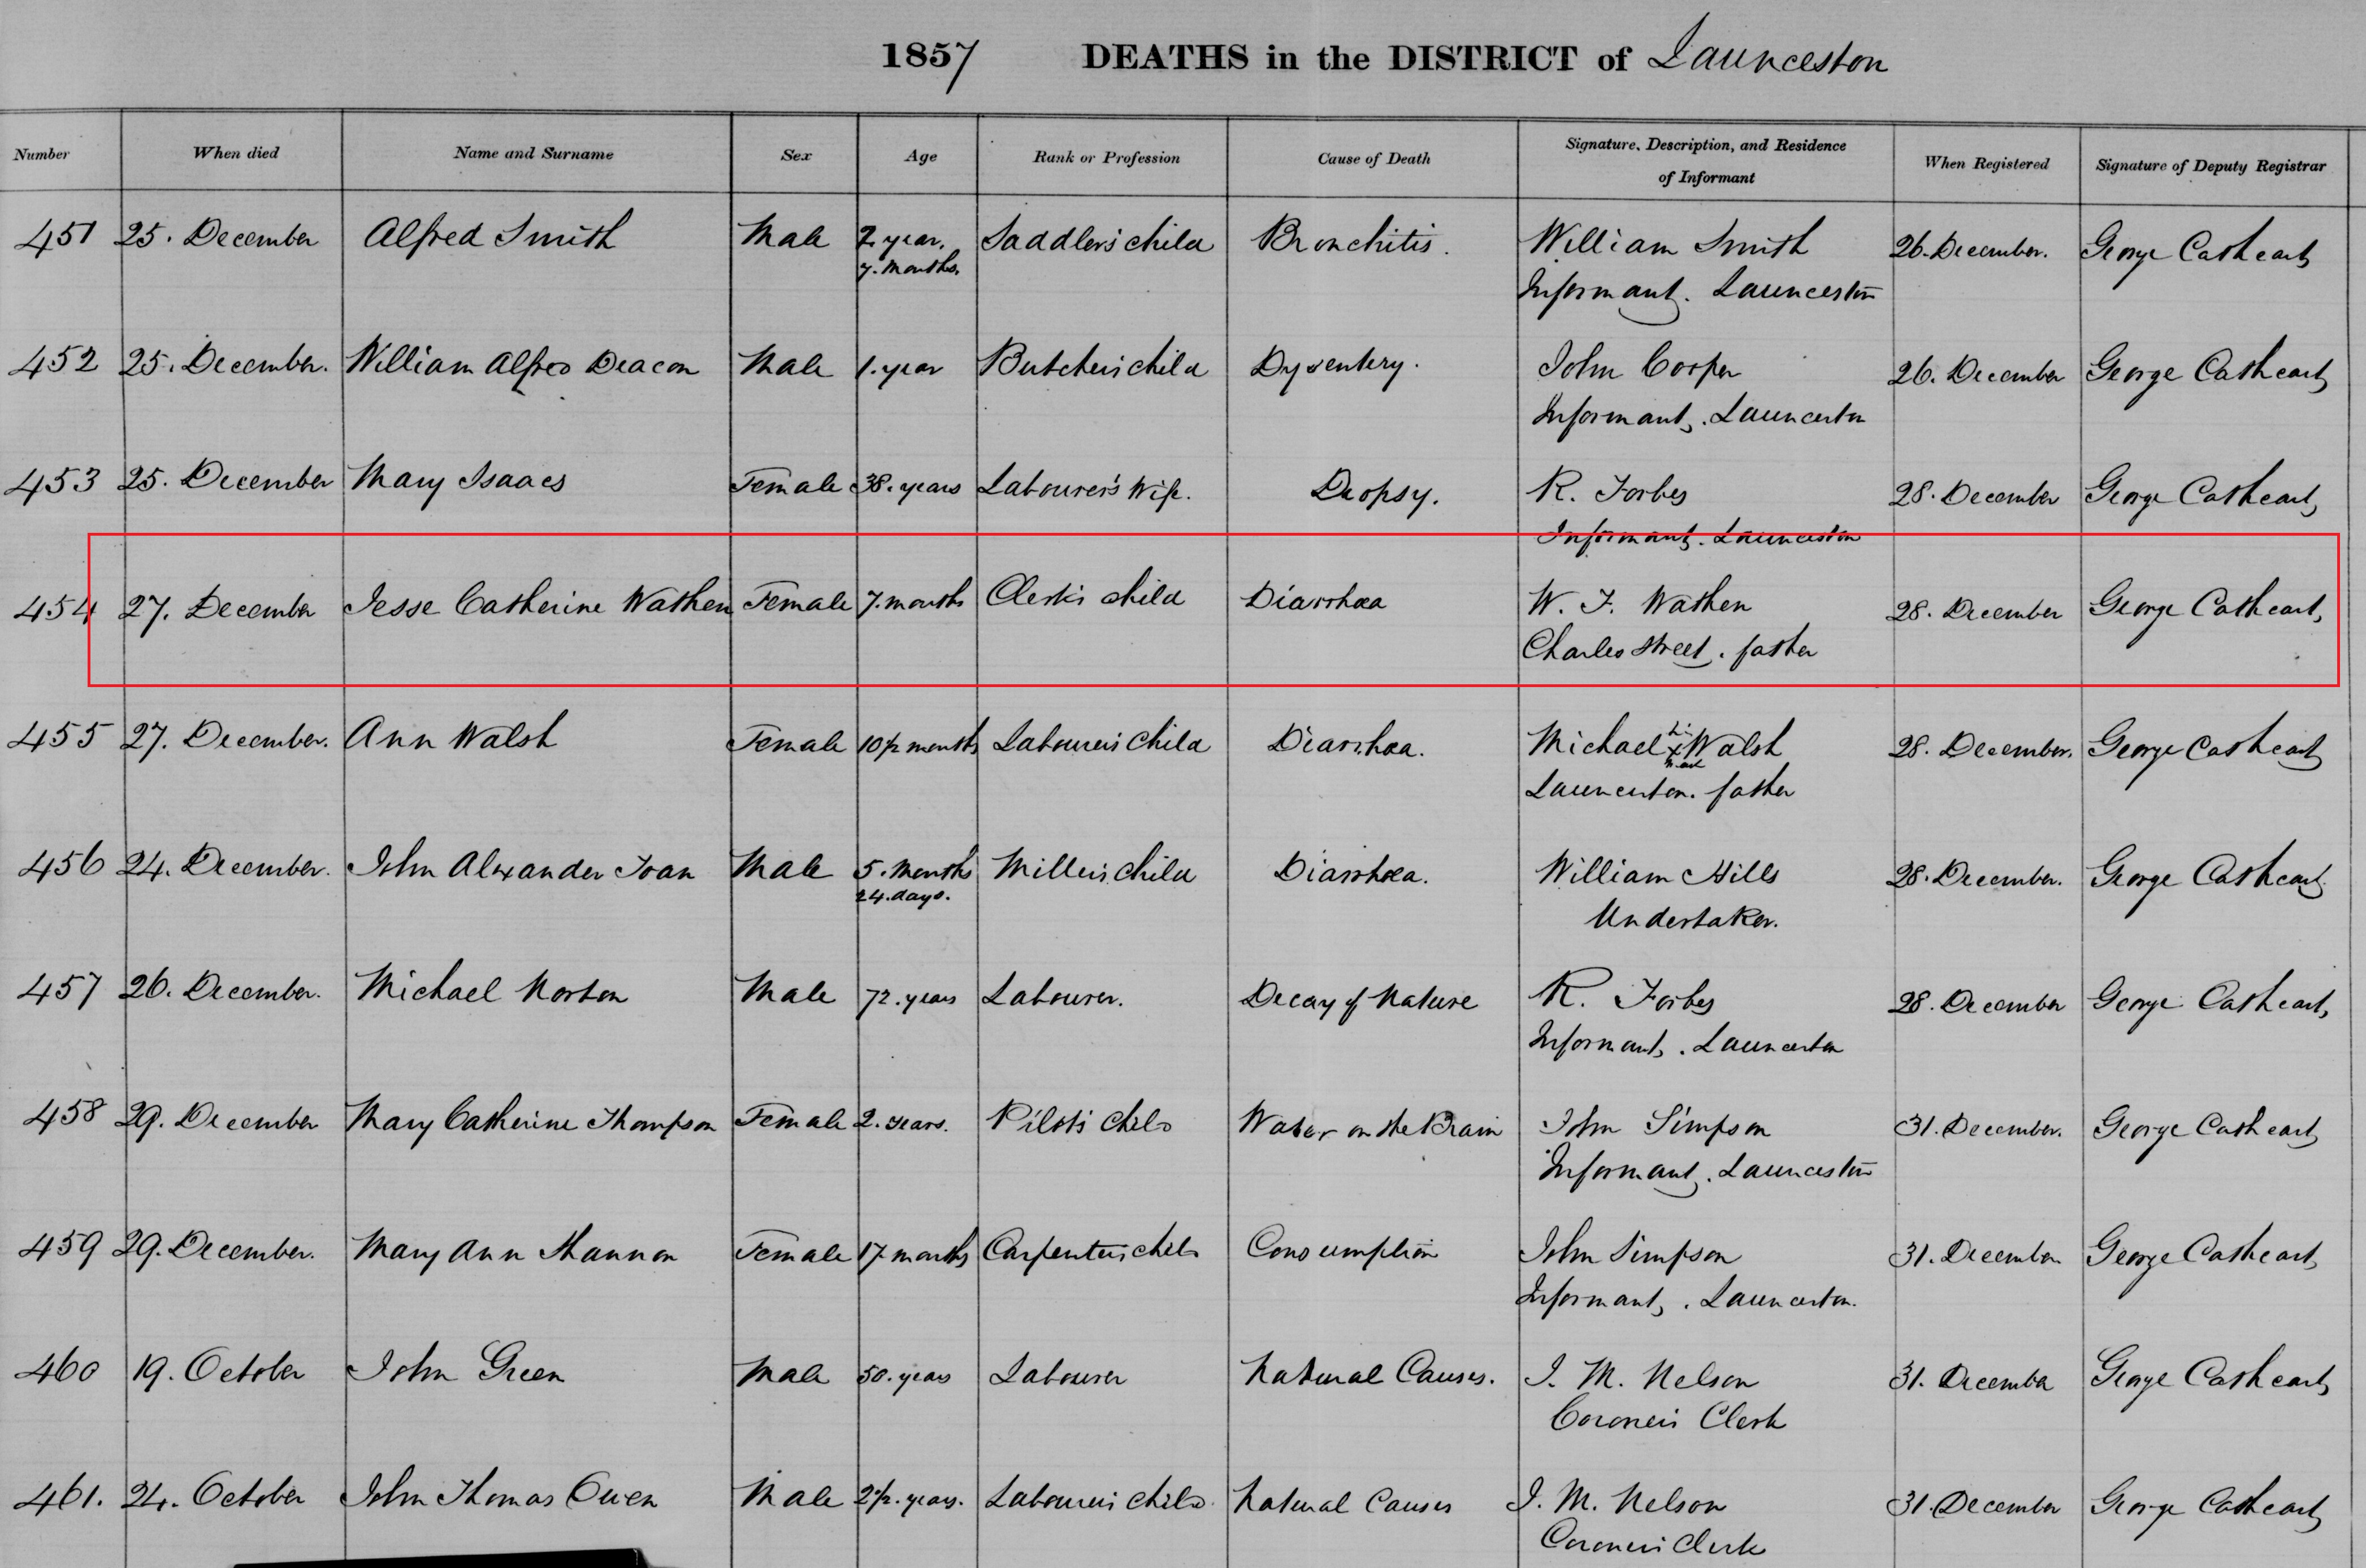 1857 DEATHS in the DISTRICT of Launceston
Number When died Name and Surname Sex Age Rank or Profession Cause of Death Signature, Description, and Residence of Informant When Registered Signature of Deputy Registrar
451 25. December Alfred Smith Male 2 year. Saddler's child Bronchitis. William Smith 26. December. George Cathcart
7. Months. Informant. Launceston
452 25. December. William Alfred Deacon Male 1. year Butcher's child Dysentery. John Cooper 26. December George Cathcart
Informant. Launceston
453 25. December Mary Isaacs Female 38. years Labourer's Wife. Dropsy. R. Forbes 28. December George Cathcart
Informant. Launceston
454 27. December Jesse Catherine Wathen Female 7. months Clerk's child Diarrhœa W. F. Wathen 28. December George Cathcart
Charles Street. father
455 27. December. Ann Walsh Female 10½ months Labourer's Child Diarrhœa. Michael his x mark Walsh 28. December. George Cathcart
Launceston. father
456 24. December. John Alexander Male 5. Months Miller's child Diarrhœa. William Hills 28. December. George Cathcart
24. days. Undertaker.
457 26. December. Michael Norton Male 72. years Labourer. Decay of Nature R. Forbes 28. December George Cathcart
Informant. Launceston
458 29. December Mary Catherine Thompson Female 2. years. Pilot's child Water on the Brain John Simpson 31. December. George Cathcart
Informant. Launceston
459 29. December. Mary Ann Shannon Female 17 months Carpenter's child Consumption John Simpson 31. December George Cathcart
Informant. Launceston.
460 19. October John Green Male 50. years Labourer Natural Causes. J. M. Nelson 31. December George Cathcart
Coroner's Clerk
461. 24. October John Thomas Owen Male 2½. years. Labourer's child Natural Causes J. M. Nelson 31. December George Cathcart
Coroner's Clerk